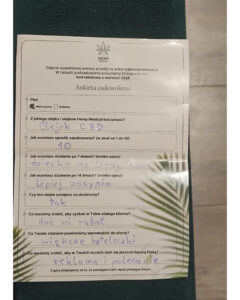 HEMP
Zdjęcie wypełnionej ankiety prześlij na
W ramach podziękowania przyznamy Ci
kod rabatowy o wartości
Ankieta zadowolenia
Płeć
Mężczyzna Kobieta
Z jakiego olejku i olejków Hemp Medical korzystasz?
Olejek CBD
Jak oceniasz sposób zapakowania? (w skali od 1 do 10)
10
Jak oceniasz działanie po 7 dniach? (krótko opisz)
dziecko
Jak oceniasz działanie po 14 dniach? (krótko opisz)
Lepiej zasypia
Czy ten olejek uznajesz za skuteczny?
tak
Co możemy zrobić, aby zyskać w Tobie stałego klienta?
dać mi rabat
Co w Twoim zdaniem powinniśmy wprowadzić do oferty?
większe buteleczki
Co możemy zrobić, aby w Twoich oczach stać się jeszcze lepszą firmą?
reklama i polecanie